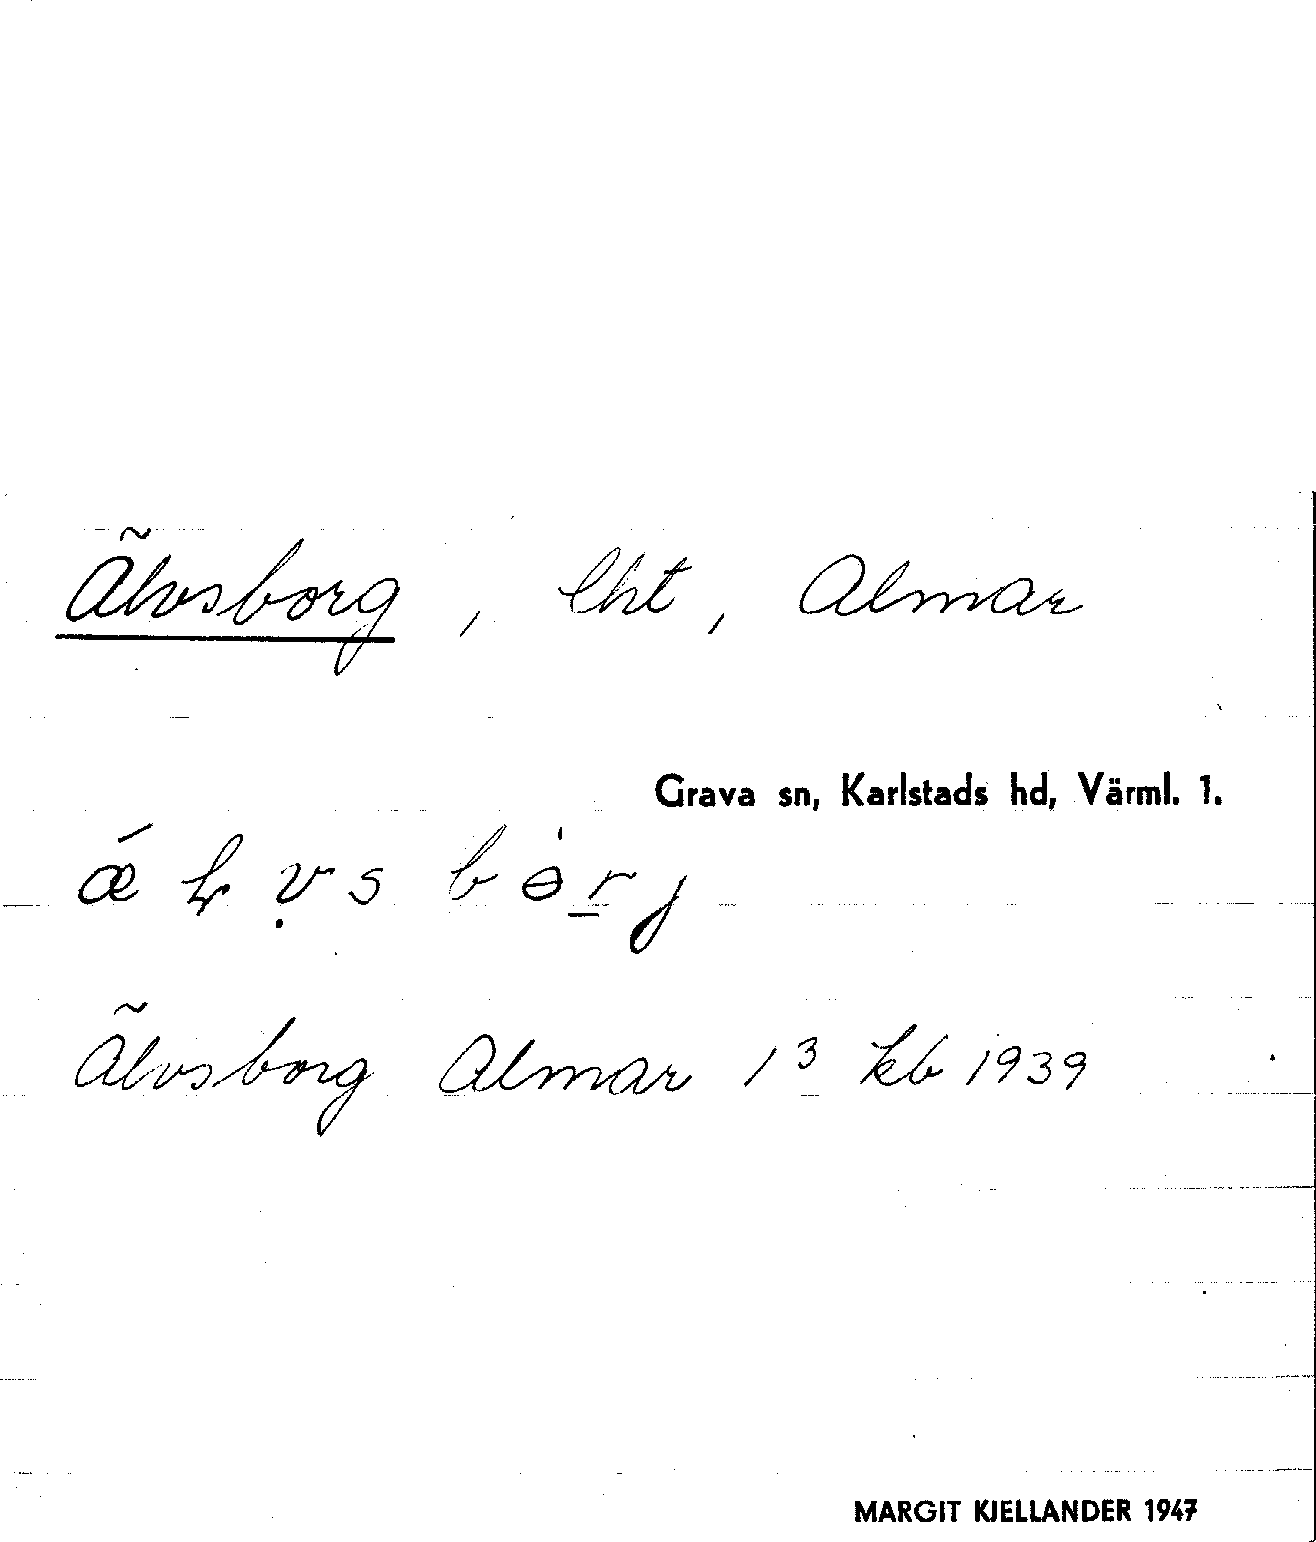 Älvsborg, lht, Almar
Grava sn, Karlstads hd, Värml. 1.
Älvsborg Almar 1³ kb 1939
MARGIT KJELLANDER 1947